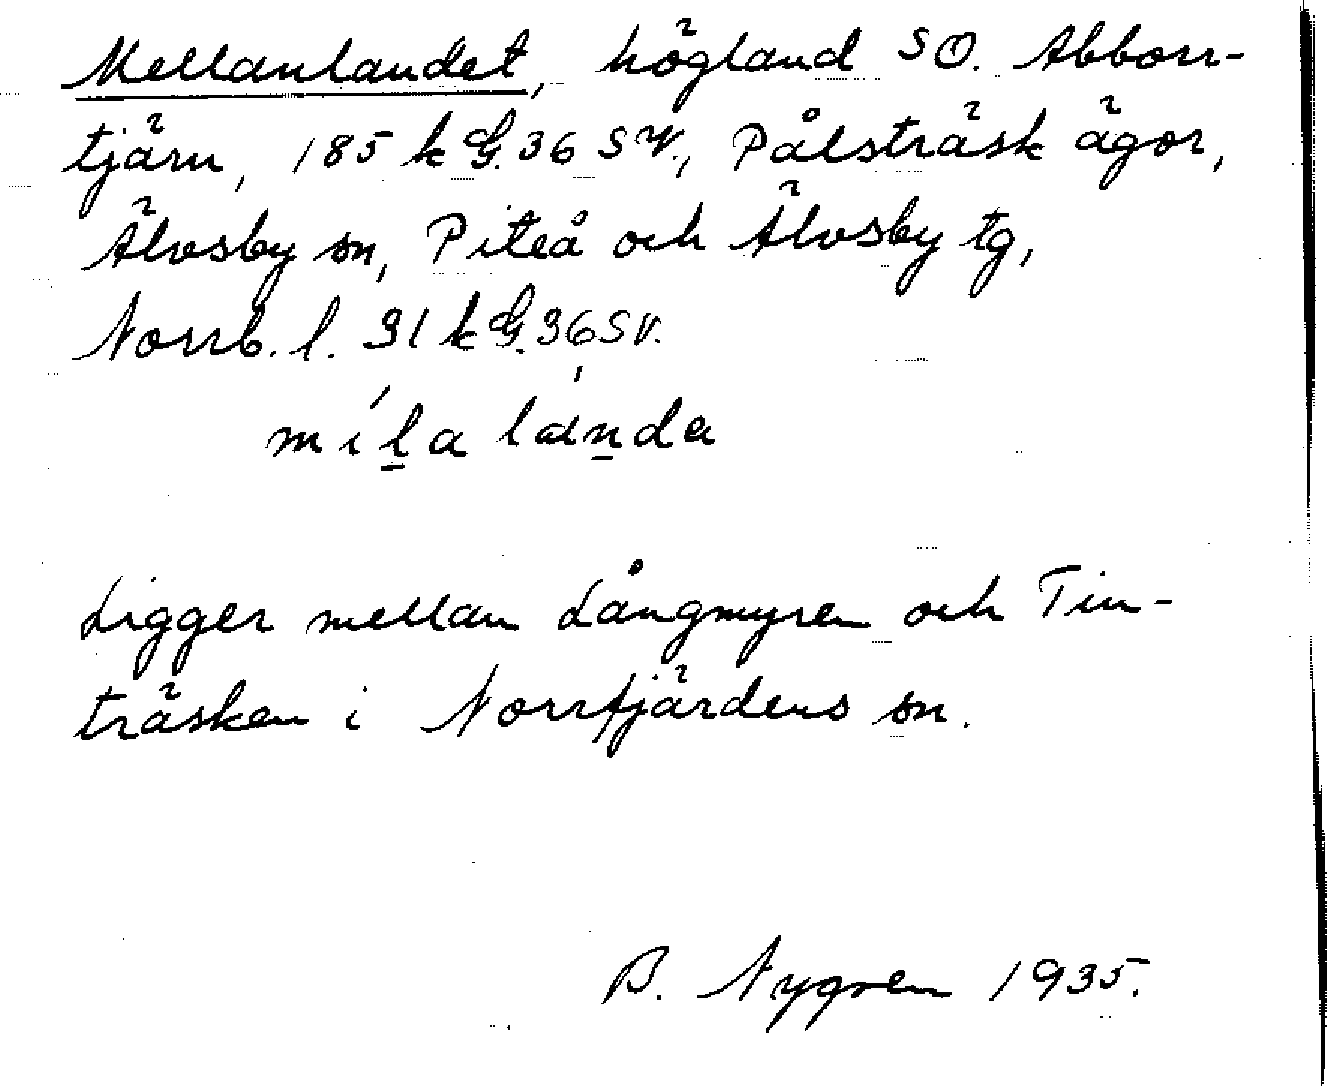 Mellanlandet, högland SO. Abborr-
tjärn, 185 k G. 36 SV., Pålsträsk ägor,
Älvsby sn, Piteå och Älvsby tg,
Norrb. l. 31 k G. 36 SV.
míla lánda
Ligger mellan Långmyren och Tin-
träsken i Norrfjärdens sn.
B. Nygren 1935.